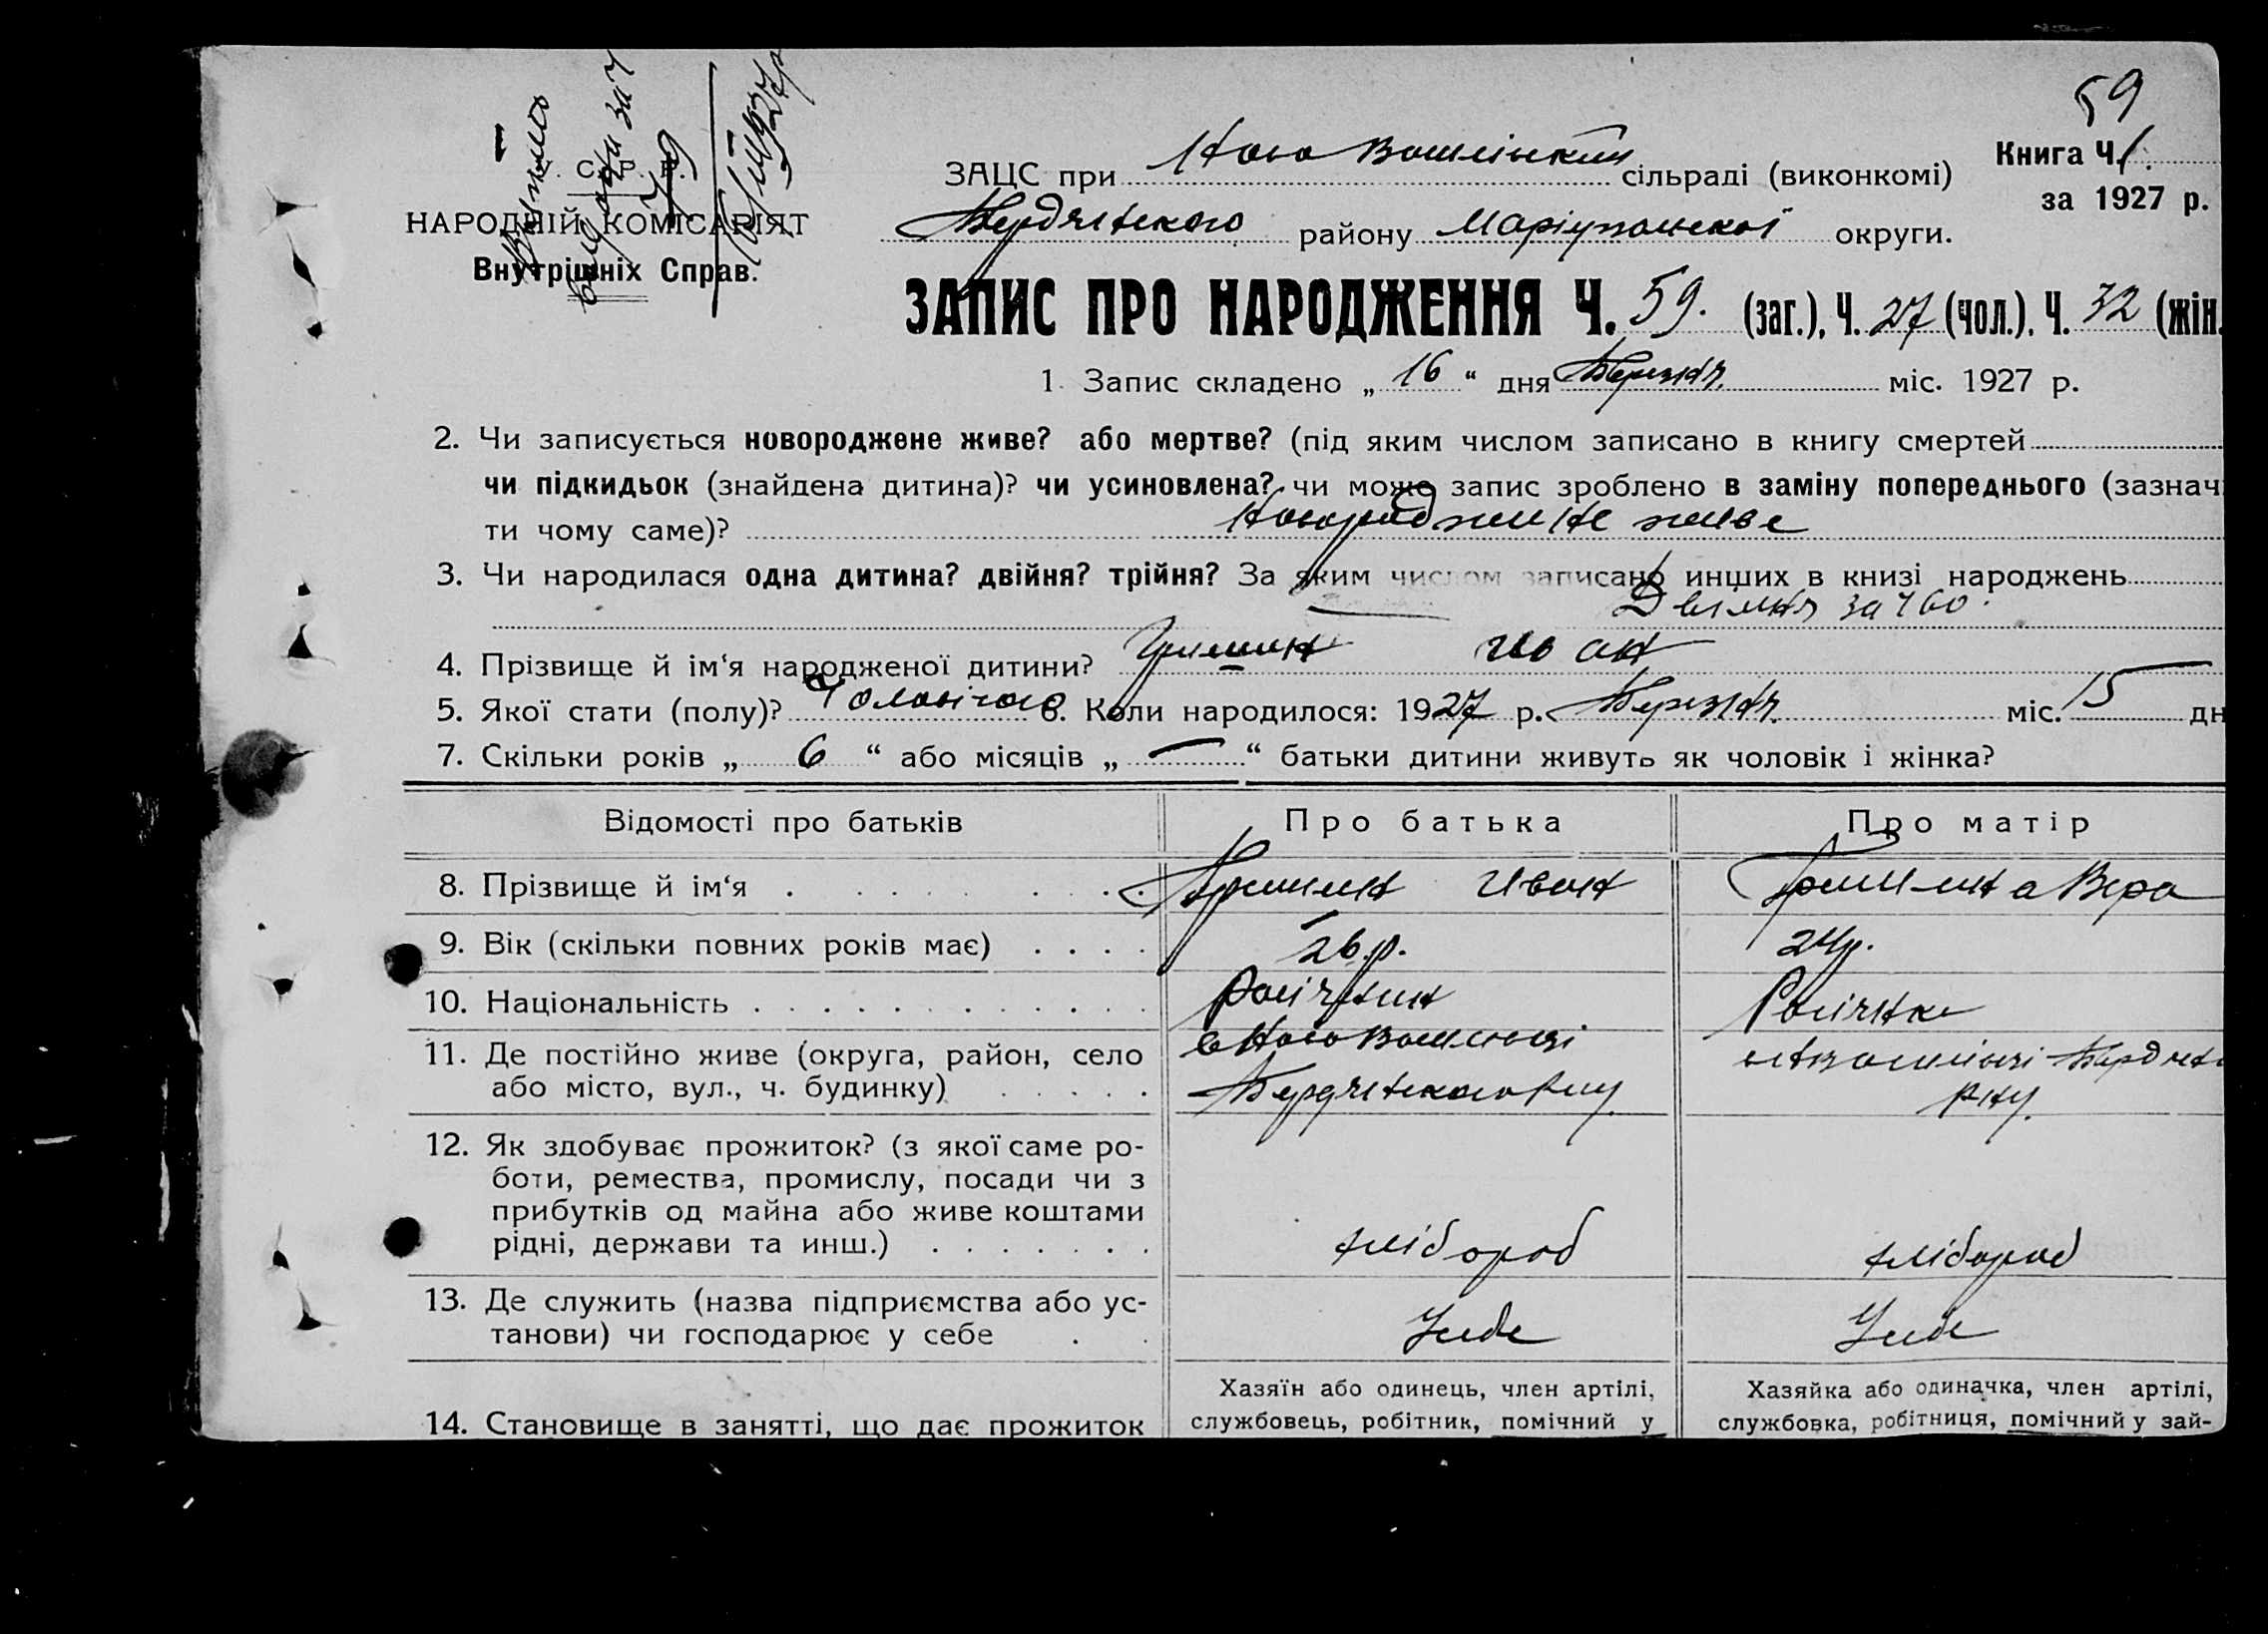 59
Книга Ч. 1.
за 1927 р.
У. С. Р. Р.
НАРОДНІЙ КОМІСАРІЯТ
Внутрішніх Справ.
ЗАЦС при Ново Вашлінській сільраді (виконкомі)
Бердянського району Маріупольської округи.
ЗАПИС ПРО НАРОДЖЕННЯ Ч. 59. (заг.), Ч. 27 (чол.), Ч. 32 (жін.
1. Запис складено „ 16 “ дня Березня міс. 1927 р.
2. Чи записується новороджене живе? або мертве? (під яким числом записано в книгу смертей
чи підкидьок (знайдена дитина)? чи усиновлена? чи може запис зроблено в заміну попереднього (зазначи
ти чому саме)? новородженне живе
3. Чи народилася одна дитина? двійня? трійня? За яким числом записано инших в книзі народжень
Двійня за Ч 60.
4. Прізвище й ім‘я народженої дитини? Гришин Иван
5. Якої стати (полу)? Чоловічого 6. Коли народилося: 1927 р. Березня міс. 15 дн
7. Скільки років „ 6 “ або місяців „ — “ батьки дитини живуть як чоловік і жінка?
Відомості про батьків Про батька Про матір
8. Прізвище й ім‘я Гришин Иван Гришина Вера
9. Вік (скільки повних років має) 26.р. 24р.
10. Національність Росіянин Росіянка
11. Де постійно живе (округа, район, село
або місто, вул., ч. будинку) Бердянського р-ну р-ну.
12. Як здобуває прожиток? (з якої саме ро-
боти, ремества, промислу, посади чи з
прибутків од майна або живе коштами
рідні, держави та инш.) хлібороб хлібороб
13. Де служить (назва підприємства або ус-
танови) чи господарює у себе У себе У себе
14. Становище в занятті, що дає прожиток
Хазяїн або одинець, член артілі,
службовець, робітник, помічний у
Хазяйка або одиначка, член артілі,
службовка, робітниця, помічний у зай-